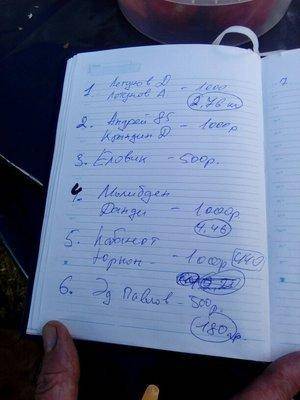 1. Логунов Д
Логунов А - 1000
2.76 кг
2. Андрей 85
Д. - 1000р
3. Еловик - 500р.
4. Молибден
Фанди - 1000р
4.46
5. Кабинет
- 1000р 440
6. Эд Павлов - 500р.
180гр.